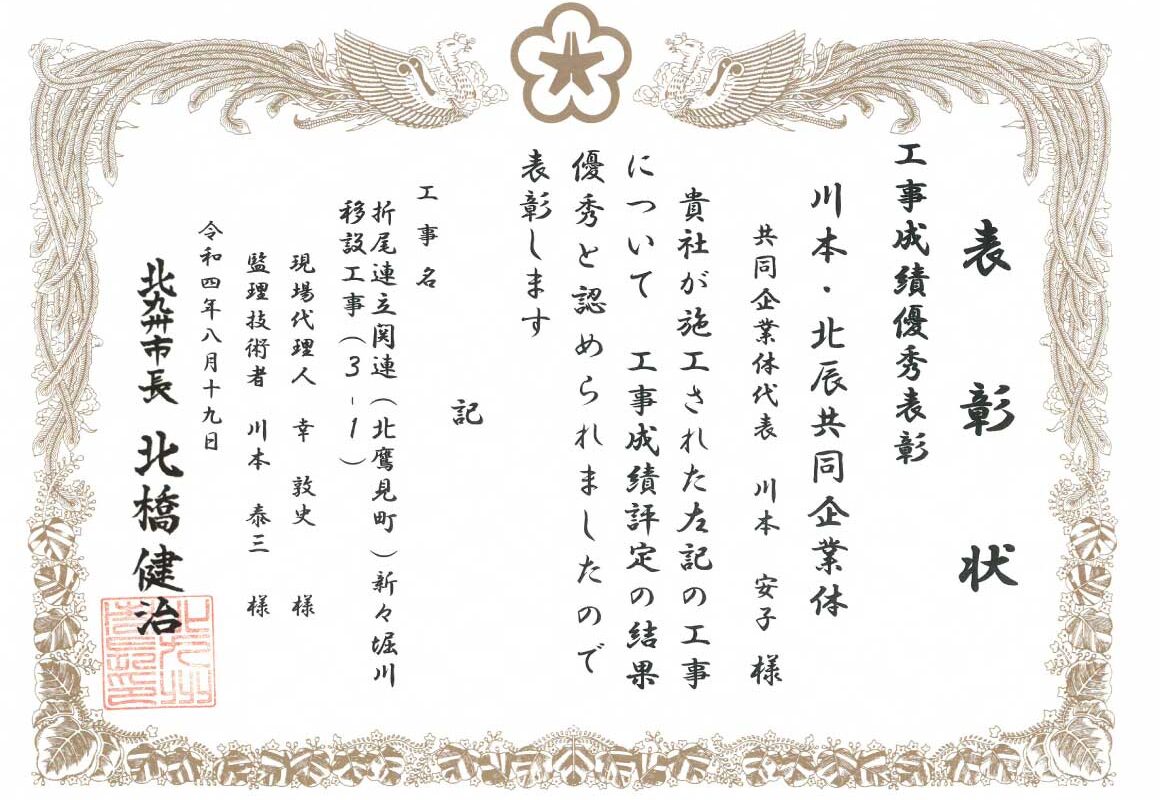 表彰状
工事成績優秀表彰
川本・北辰共同企業体
共同企業体代表 川本 安子 様
貴社が施工された左記の工事
について 工事成績評定の結果
優秀と認められましたので
表彰します
記
工事名
折尾連立関連(北鷹見町)新々堀川
移設工事(3-1)
現場代理人 幸 敦史 様
監理技術者 川本 泰三 様
令和四年八月十九日
北九州市長 北橋健治